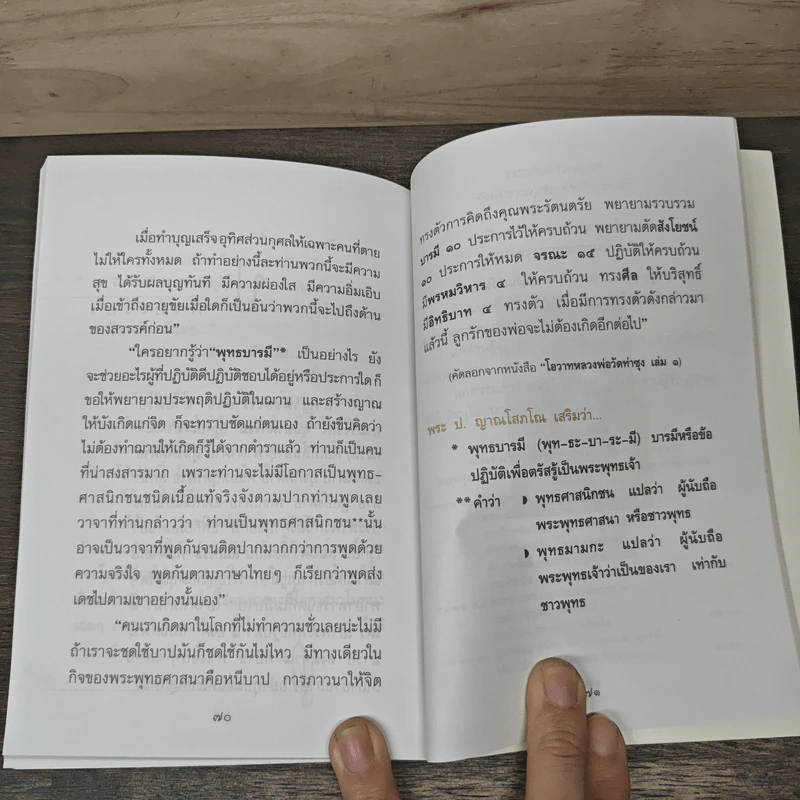 เมื่อทำบุญเสร็จอุทิศส่วนกุศลให้เฉพาะคนที่ตาย
ไม่ให้ใครทั้งหมด ถ้าทำอย่างนี้ละท่านพวกนี้จะมีความ
สุข ได้รับผลบุญทันที มีความผ่องใส มีความอิ่มเอิบ
เมื่อเข้าถึงอายุขัยเมื่อใดก็เป็นอันว่าพวกนี้จะไปถึงด้าน
ของสวรรค์ก่อน”
“ใครอยากรู้ว่า“พุทธบารมี”* เป็นอย่างไร ยัง
จะช่วยอะไรผู้ที่ปฏิบัติดีปฏิบัติชอบได้อยู่หรือประการใด ก็
ขอให้พยายามประพฤติปฏิบัติในฌาน และสร้างญาณ
ให้บังเกิดแก่จิต ก็จะทราบชัดแก่ตนเอง ถ้ายังขืนคิดว่า
ไม่ต้องทำฌานให้เกิดก็รู้ได้จากตำราแล้ว ท่านก็เป็นคน
ที่น่าสงสารมาก เพราะท่านจะไม่มีโอกาสเป็นพุทธ-
ศาสนิกชนชนิดเนื้อแท้จริงจังตามปากท่านพูดเลย
วาจาที่ท่านกล่าวว่า ท่านเป็นพุทธศาสนิกชน**นั้น
อาจเป็นวาจาที่พูดกันจนติดปากมากกว่าการพูดด้วย
ความจริงใจ พูดกันตามภาษาไทยๆ ก็เรียกว่าพูดส่ง
เดชไปตามเขาอย่างนั้นเอง”
“คนเราเกิดมาในโลกที่ไม่ทำความชั่วเลยน่ะไม่มี
ถ้าเราจะชดใช้บาปมันก็ชดใช้กันไม่ไหว มีทางเดียวใน
กิจของพระพุทธศาสนาคือหนีบาป การภาวนาให้จิต
๗๐
ทรงตัวการคิดถึงคุณพระรัตนตรัย พยายามรวบรวม
บารมี ๑๐ ประการไว้ให้ครบถ้วน พยายามตัดสังโยชน์
๑๐ ประการให้หมด จรณะ ๑๕ ปฏิบัติให้ครบถ้วน
มีพรหมวิหาร ๔ ให้ครบถ้วน ทรงศีล ให้บริสุทธิ์
มีอิทธิบาท ๔ ทรงตัว เมื่อมีการทรงตัวดังกล่าวมา
แล้วนี้ ลูกรักของพ่อจะไม่ต้องเกิดอีกต่อไป”
(คัดลอกจากหนังสือ “โอวาทหลวงพ่อวัดท่าซุง เล่ม ๑)
พระ ป. ญาณโสภโณ เสริมว่า...
* พุทธบารมี (พุท-ธะ-บา-ระ-มี) บารมีหรือข้อ
ปฏิบัติเพื่อตรัสรู้เป็นพระพุทธเจ้า
** คำว่า ◗ พุทธศาสนิกชน แปลว่า ผู้นับถือ
พระพุทธศาสนา หรือชาวพุทธ
◗ พุทธมามกะ แปลว่า ผู้นับถือ
พระพุทธเจ้าว่าเป็นของเรา เท่ากับ
ชาวพุทธ
๗๑